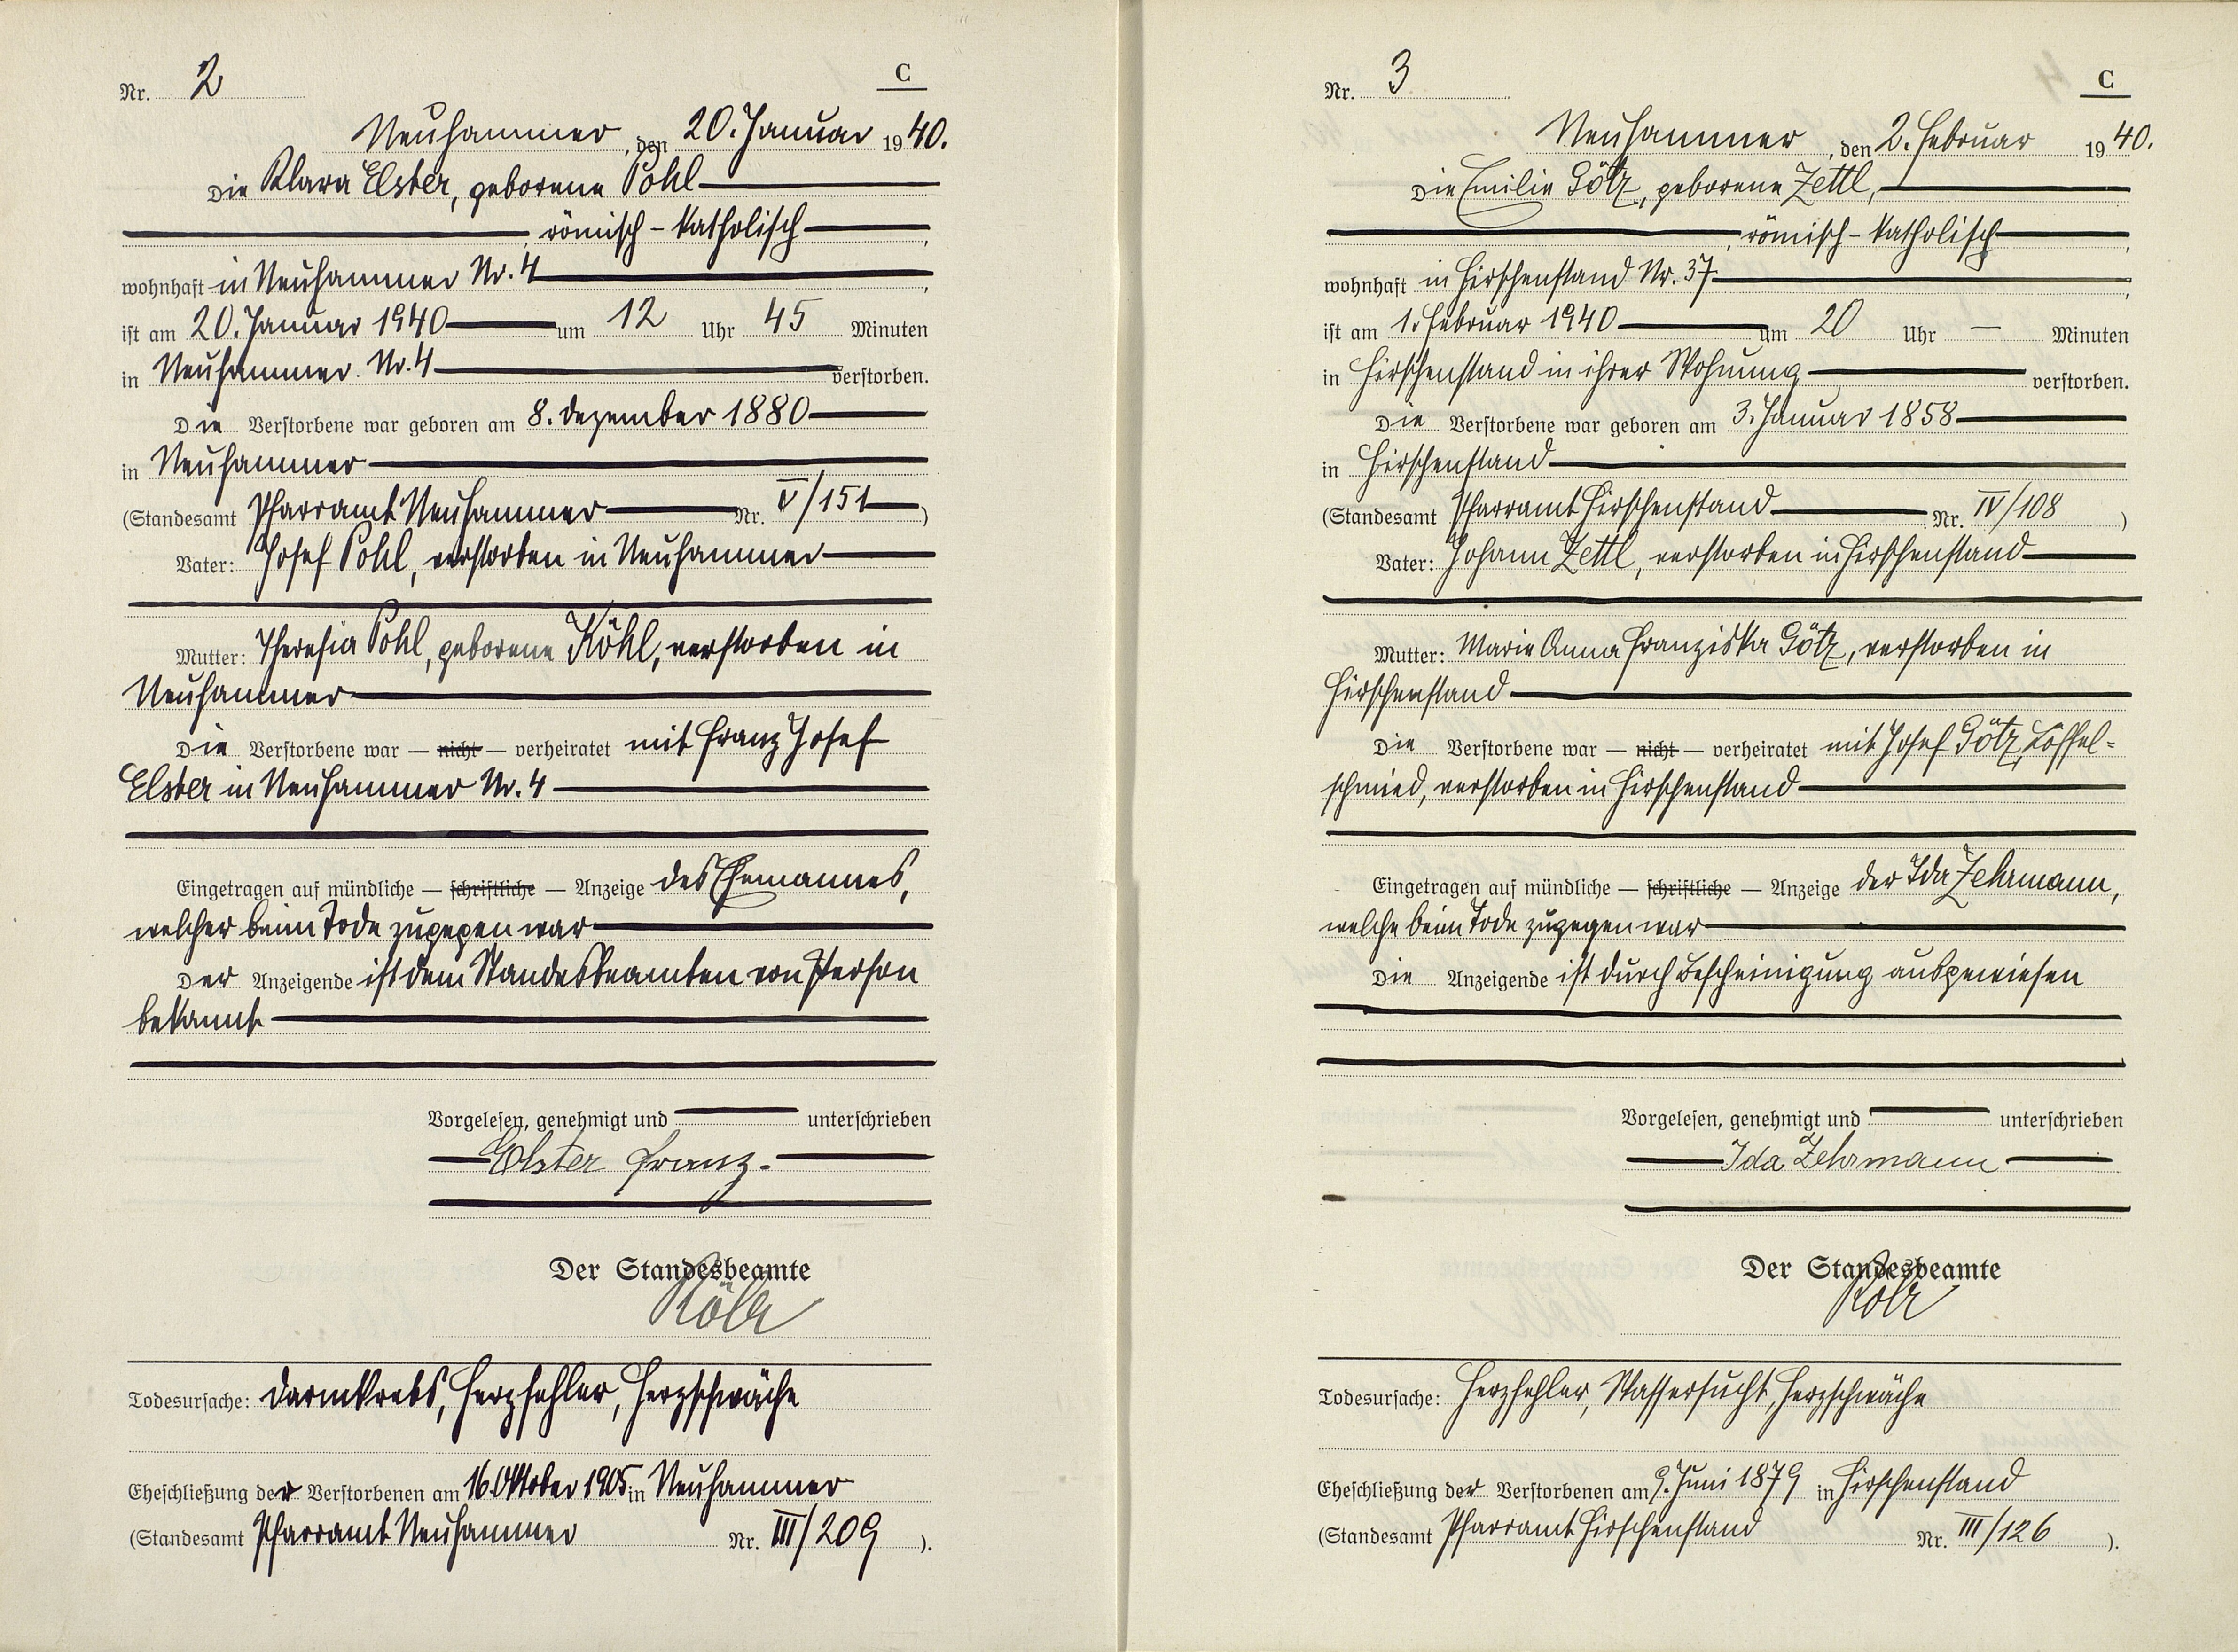 Nr. 2
C
Neuhammer, den 20. Januar 1940.
Die Klara Elster, geborene Pohl
römisch-katholisch,
wohnhaft in Neuhammer Nr. 4,
ist am 20. Januar 1940 um 12 Uhr 45 Minuten
in Neuhammer Nr. 4 verstorben.
Die Verstorbene war geboren am 8. Dezember 1880
in Neuhammer
(Standesamt Pfarramt Neuhammer Nr. V/151)
Vater: Josef Pohl, verstorben in Neuhammer
Mutter: Theresia Pohl, geborene Köhl, verstorben in
Neuhammer
Die Verstorbene war — nicht — verheiratet mit Franz Josef
Elster in Neuhammer Nr. 4
Eingetragen auf mündliche — schriftliche — Anzeige des Ehemannes,
welcher beim Tode zugegen war
Der Anzeigende ist dem Standesbeamten von Person
bekannt
Vorgelesen, genehmigt und unterschrieben
Elster Franz.
Der Standesbeamte
Todesursache: Darmkrebs, Herzfehler, Herzschwäche
Eheschließung der Verstorbenen am 16. Oktober 1905 in Neuhammer
(Standesamt Pfarramt Neuhammer Nr. III/209).
Nr. 3
C
Neuhammer, den 2. Februar 1940.
Die Emilie Götz, geborene Zettl,
römisch-katholisch,
wohnhaft in Hirschenstand Nr. 37,
ist am 1. Februar 1940 um 20 Uhr — Minuten
in Hirschenstand in ihrer Wohnung verstorben.
Die Verstorbene war geboren am 3. Januar 1858
in Hirschenstand
(Standesamt Pfarramt Hirschenstand Nr. IV/108)
Vater: Johann Zettl, verstorben in Hirschenstand
Mutter: Marie Anna Franziska Götz, verstorben in
Hirschenstand
Die Verstorbene war — nicht — verheiratet mit Josef Götz, Löffel-
schmied, verstorben in Hirschenstand
Eingetragen auf mündliche — schriftliche — Anzeige der Ida Zehrmann,
welche beim Tode zugegen war
Die Anzeigende ist durch Bescheinigung ausgewiesen
Vorgelesen, genehmigt und unterschrieben
Ida Zehrmann
Der Standesbeamte
Todesursache: Herzfehler, Wassersucht, Herzschwäche
Eheschließung der Verstorbenen am 9. Juni 1879 in Hirschenstand
(Standesamt Pfarramt Hirschenstand Nr. III/126).